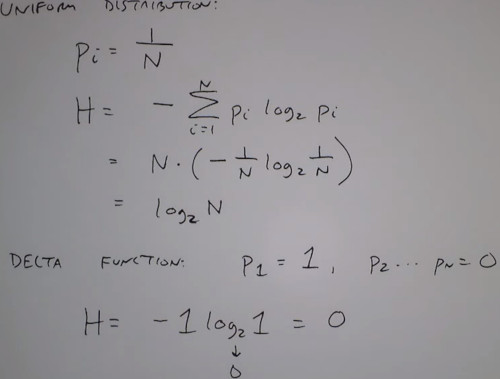 UNIFORM DISTRIBUTION:
pi = 1/N
H = - N∑i=1 pi log₂ pi
= N · (- 1/N log₂ 1/N)
= log₂ N
DELTA FUNCTION: p₁ = 1, p₂ ... pN = 0
H = -1 log₂ 1 = 0
↓
0